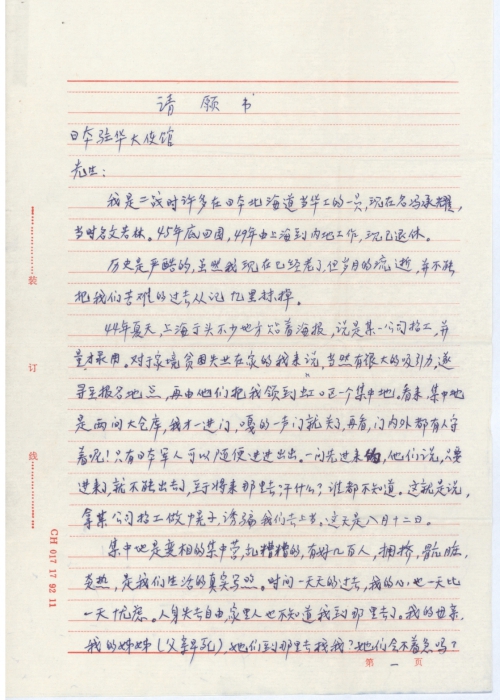 请愿书
日本驻华大使馆
先生：
我是二战时许多在日本北海道当华工的一员，现在名冯承耀，
当时名文若休。45年底回国，49年由上海到内地工作，现已退休。
历史是严酷的，虽然我现在已经老了，但岁月的流逝，并不能
把我们苦难的过去从记忆里抹掉。
44年夏天，上海于头不少地方贴着海报，说是某一公司招工，并
量才录用。对于家境贫困失业在家的我来说，当然有很大的吸引力，遂
寻至报名地点，再由他们把我领到虹口区一个集中地。看来，集中地
是两间大仓库，我才一进门，嘎的一声门就关了，再看，门内外都有人守
着呢！只有日本军人可以随便进进出出。一问先进来的，他们说，只要
进来了，就不能出去了，至于将来那里去？干什么？谁都不知道。这就是说，
拿某公司招工做幌子，诱骗我们去上当。这天是八月十二日。
集中地是变相的集中营，乱糟糟的，有好几百人，拥挤，肮脏，
炎热，是我们生活的真实写照。时间一天天的过去，我的心，也一天比
一天忧虑。人身失去自由，家里人也不知道我到那里去了。我的母亲，
我的姊姊（父亲早死），她们到那里去找我？她们会不着急吗？
装
订
线
CH 017 17 92 11
第一页